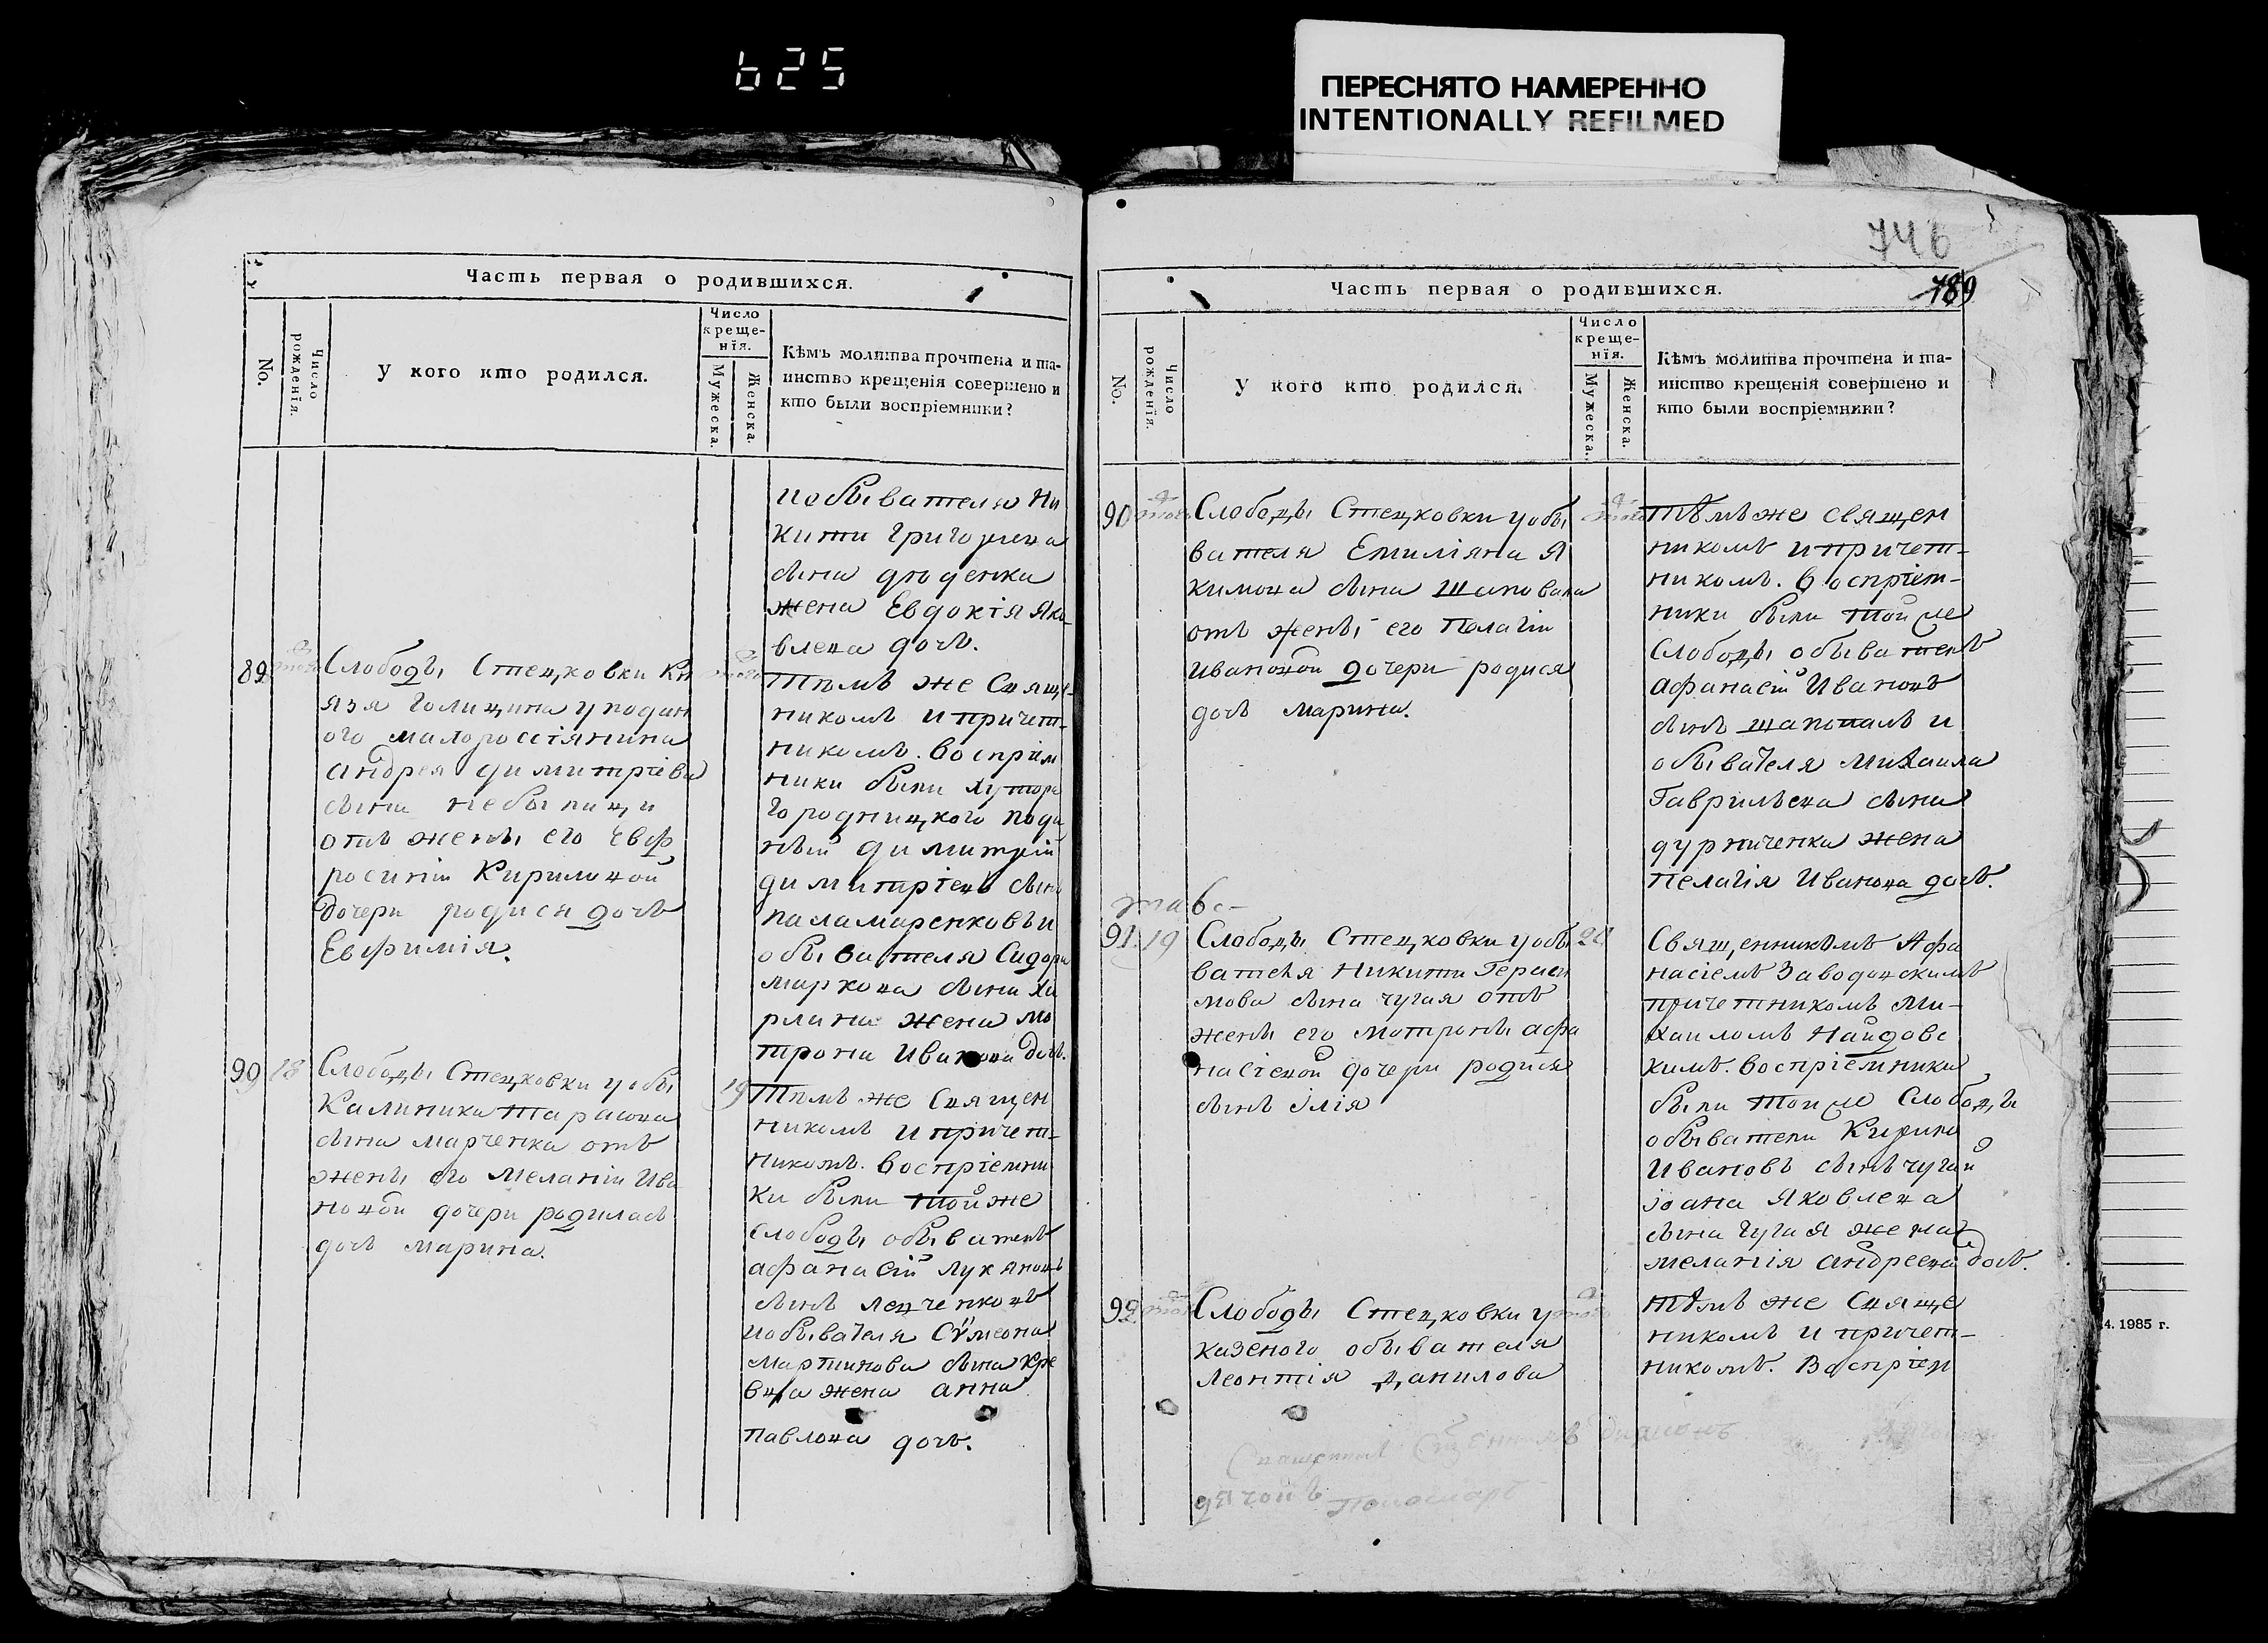 625
ПЕРЕСНЯТО НАМЕРЕННО
INTENTIONALLY REFILMED
Часть первая о родившихся.
No.
Число рожденїя.
У кого кто родился.
Число
креще-
нїя.
Мужеска.
Женска.
Кѣмъ молитва прочтена и та-
инство крещенїя совершено и
кто были воспрїемники?
и обывателя Ни
киты Григориева
сына дюденка
жена Евдокія Яко
влева дочь.
89
Слободы Стецковки Кн
язя Голицина у подан
ого малоросіянина
андрея димитріева
сына небылици
отъ жены его Евф
росиніи Кириловой
дочери родися дочь
Евфимія.
Тѣмъ же Свяще-
никомъ и причет-
никомъ. воспріем
ники были хутора
Городницкого подда
ный димитрій
димитріевъ сынъ
паламаренковъ и
обывателя Сидора
маркова сына ха
рлана жена мо
трона Иванова дочь.
90 18
Слободы Стецковки у обы
Калиника тарасова
сына марченка отъ
жены его меланіи Ива
новой дочери родилась
дочь марина.
19
Тѣмъ же Священ
никомъ и причет-
никомъ. воспріемни
ки были тойже
Слободы обыватель
афанасій Лукяновъ
сынъ левченковъ
и обывателя Сѵмеона
мартинова сына кра
вца жена анна
павлова дочь.
746
789
Часть первая о родившихся.
No.
Число рожденїя.
У кого кто родился.
Число
креще-
нїя.
Мужеска.
Женска.
Кѣмъ молитва прочтена и та-
инство крещенїя совершено и
кто были воспрїемники?
90
Слободы Стецковки у обы
вателя Емиліяна Я
кимова сына шаповала
отъ жены его Пелагіи
Ивановой дочери родися
дочь марина.
тѣмъ же священ
никомъ и причет-
никомъ. воспріем-
ники были той же
Слободы обыватель
афанасій Ивановъ
сынъ шаповалъ и
обывателя михаила
Гаврилова сына
дурниченка жена
пелагія Иванова дочь.
91. 19
Слободы Стецковки у обы
вателя Никиты Гераси
мова сына чугая отъ
жены его мотроны афа
насіевой дочери родися
сынъ ілія
20
Священникомъ Афа
насіемъ Заводовскимъ
причетникомъ Ми-
хаиломъ Найдовс
кимъ. воспріемники
были той же Слободы
обыватели Кирило
Ивановъ сынъ чугай
іоана Яковлева
сына чугая жена
меланія андреева дочь.
92
Слободы Стецковки у
казеного обывателя
Леонтія данилова
тѣмъ же Свяще
никомъ и причет-
никомъ. Воспріем
4. 1985 г.